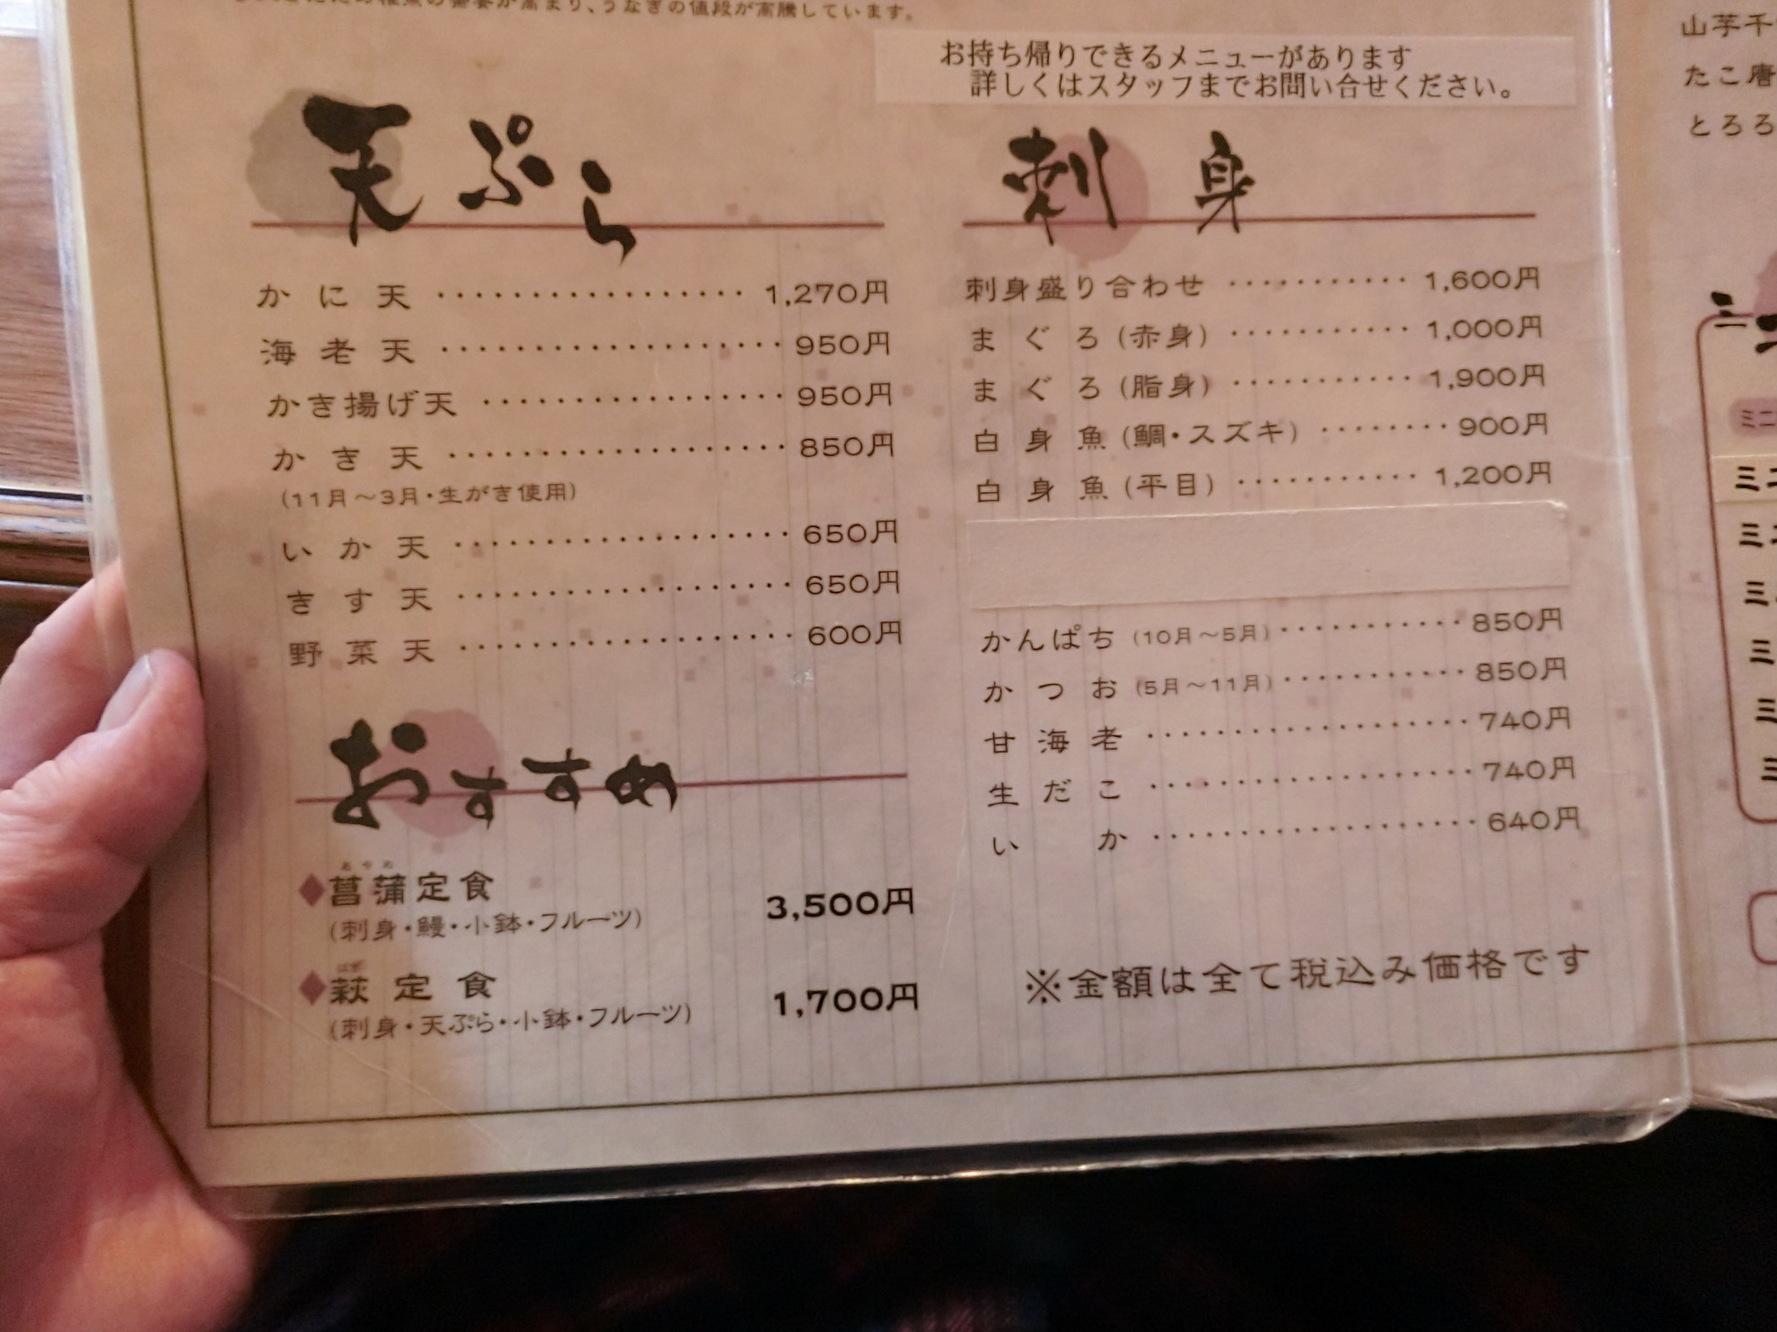 うなぎの値段が高騰しています。
お持ち帰りできるメニューがあります
詳しくはスタッフまでお問い合せください。
天ぷら
かに天 ‥‥‥‥‥‥ 1,270円
海老天 ‥‥‥‥‥‥ 950円
かき揚げ天 ‥‥‥‥‥‥ 950円
かき天 ‥‥‥‥‥‥ 850円
(11月～3月・生がき使用)
いか天 ‥‥‥‥‥‥ 650円
きす天 ‥‥‥‥‥‥ 650円
野菜天 ‥‥‥‥‥‥ 600円
おすすめ
あやめ
◆菖蒲定食 3,500円
(刺身・鰻・小鉢・フルーツ)
はぎ
◆萩定食 1,700円
(刺身・天ぷら・小鉢・フルーツ)
刺身
刺身盛り合わせ ‥‥‥‥ 1,600円
まぐろ(赤身) ‥‥‥‥ 1,000円
まぐろ(脂身) ‥‥‥‥ 1,900円
白身魚(鯛・スズキ) ‥‥‥‥ 900円
白身魚(平目) ‥‥‥‥ 1,200円
かんぱち(10月～5月) ‥‥‥‥ 850円
かつお(5月～11月) ‥‥‥‥ 850円
甘海老 ‥‥‥‥‥‥ 740円
生だこ ‥‥‥‥‥‥ 740円
いか ‥‥‥‥‥‥ 640円
※金額は全て税込み価格です
山芋千
たこ唐
とろろ
ミニ